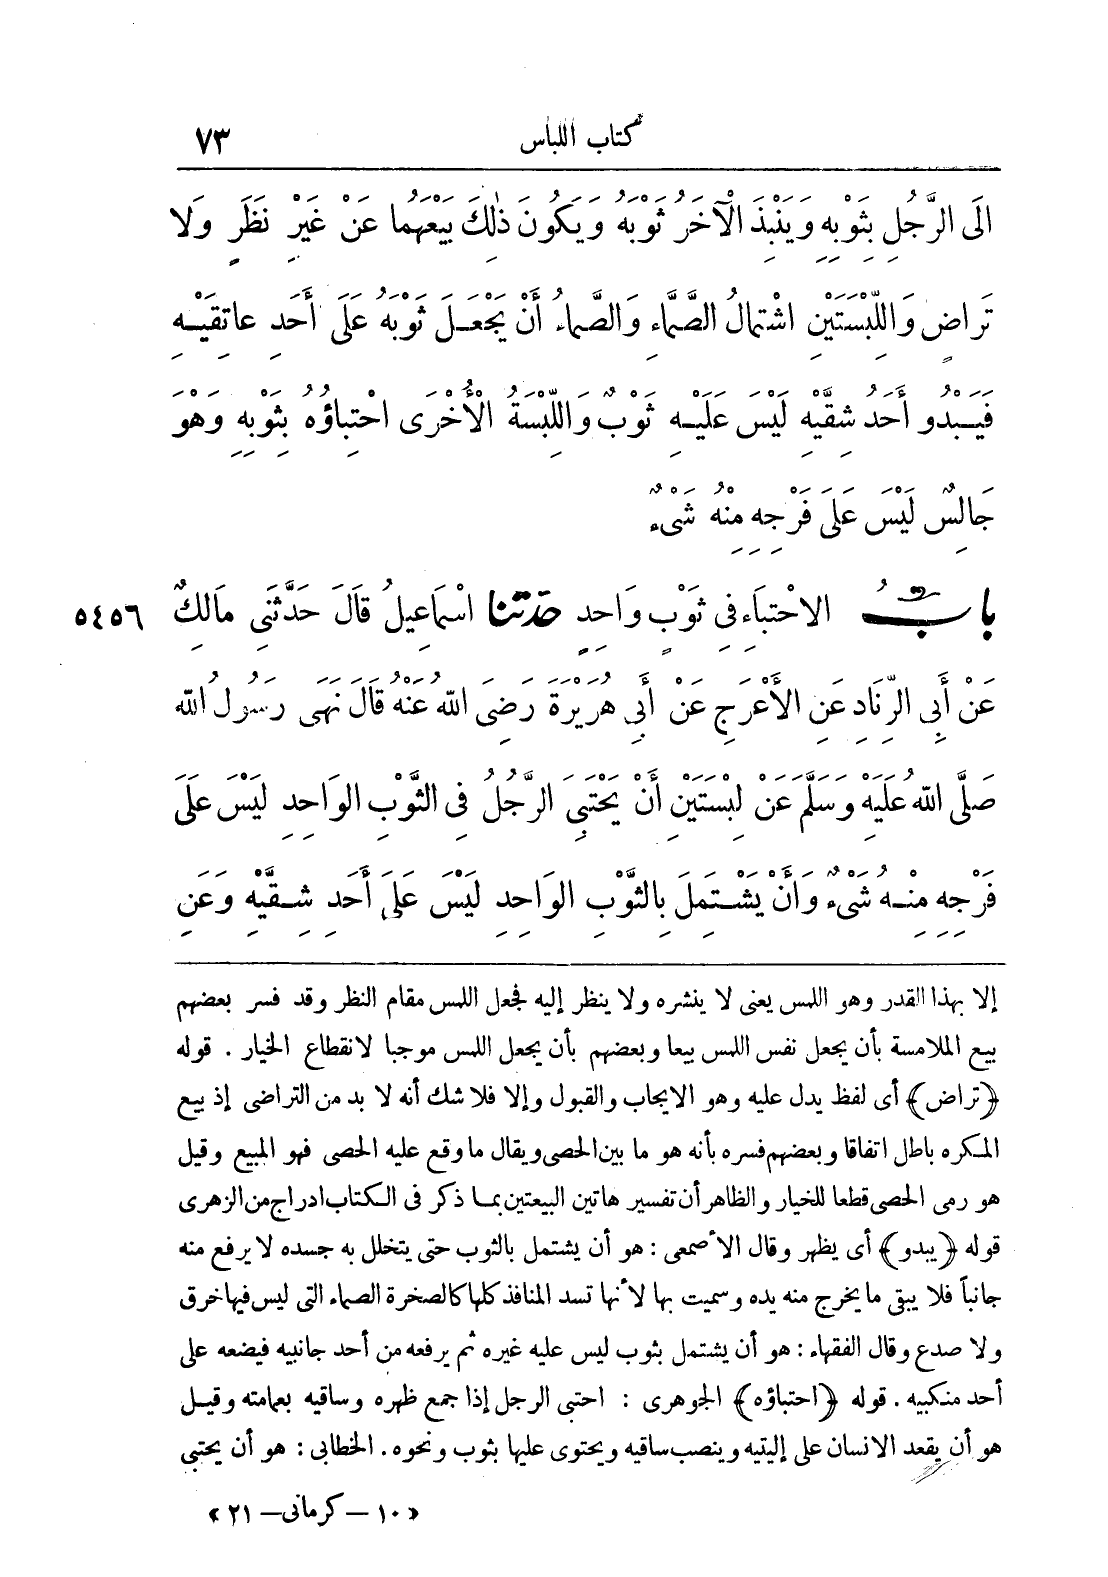 كتاب اللباس ٧٣
الَى الرَّجُلِ بِثَوْبِهِ وَيَنْبِذَ الْآخَرُ ثَوْبَهُ وَيَكُونَ ذٰلِكَ بَيْعَهُمَا عَنْ غَيْرِ نَظَرٍ وَلَا
تَرَاضٍ وَاللِّبْسَتَيْنِ اشْتِمَالُ الصَّمَّاءِ وَالصَّمَّاءُ أَنْ يَجْعَلَ ثَوْبَهُ عَلَى أَحَدِ عَاتِقَيْهِ
فَيَبْدُو أَحَدُ شِقَّيْهِ لَيْسَ عَلَيْهِ ثَوْبٌ وَاللِّبْسَةُ الْأُخْرَى احْتِبَاؤُهُ بِثَوْبِهِ وَهْوَ
جَالِسٌ لَيْسَ عَلَى فَرْجِهِ مِنْهُ شَىْءٌ
بَابُ الاحْتِبَاءِ فِى ثَوْبٍ وَاحِدٍ حدثنا اسْمَاعِيلُ قَالَ حَدَّثَنِى مَالِكٌ ٥٤٥٦
عَنْ أَبِى الزِّنَادِ عَنِ الأَعْرَجِ عَنْ أَبِى هُرَيْرَةَ رَضِىَ اللهُ عَنْهُ قَالَ نَهَى رَسُولُ اللهِ
صَلَّى اللهُ عَلَيْهِ وَسَلَّمَ عَنْ لِبْسَتَيْنِ أَنْ يَحْتَبِىَ الرَّجُلُ فِى الثَّوْبِ الوَاحِدِ لَيْسَ عَلَى
فَرْجِهِ مِنْهُ شَىْءٌ وَأَنْ يَشْتَمِلَ بِالثَّوْبِ الوَاحِدِ لَيْسَ عَلَى أَحَدِ شِقَّيْهِ وَعَنِ
إلا بهذا القدر وهو اللمس يعنى لا ينشره ولا ينظر إليه فجعل اللمس مقام النظر وقد فسر بعضهم
بيع الملامسة بأن يجعل نفس اللمس بيعا وبعضهم بأن يجعل اللمس موجبا لانقطاع الخيار . قوله
﴿تراض﴾ أى لفظ يدل عليه وهو الايجاب والقبول وإلا فلا شك أنه لا بد من التراضى إذ بيع
المكره باطل اتفاقا وبعضهم فسره بأنه هو ما بين الحصى ويقال ما وقع عليه الحصى فهو المبيع وقيل
هو رمى الحصى قطعا للخيار والظاهر أن تفسير هاتين البيعتين بما ذكر فى الكتاب ادراج من الزهرى
قوله ﴿يبدو﴾ أى يظهر وقال الأصمعى : هو أن يشتمل بالثوب حتى يتخلل به جسده لا يرفع منه
جانباً فلا يبقى ما يخرج منه يده وسميت بها لأنها تسد المنافذ كلها كالصخرة الصماء التى ليس فيها خرق
ولا صدع وقال الفقهاء : هو أن يشتمل بثوب ليس عليه غيره ثم يرفعه من أحد جانبيه فيضعه على
أحد منكبيه . قوله ﴿احتباؤه﴾ الجوهرى : احتبى الرجل إذا جمع ظهره وساقيه بعمامته وقيل
هو أن يقعد الانسان على إليتيه وينصب ساقيه ويحتوى عليها بثوب ونحوه . الخطابى : هو أن يحتبى
« ١٠ – كرمانى – ٢١ »